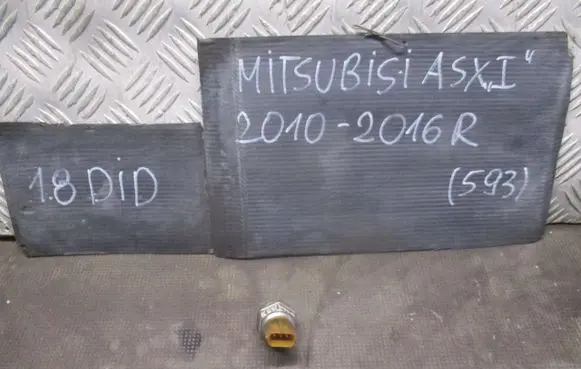 MITSUBISI ASX „I"
2010-2016 R
(593)
1.8 DID